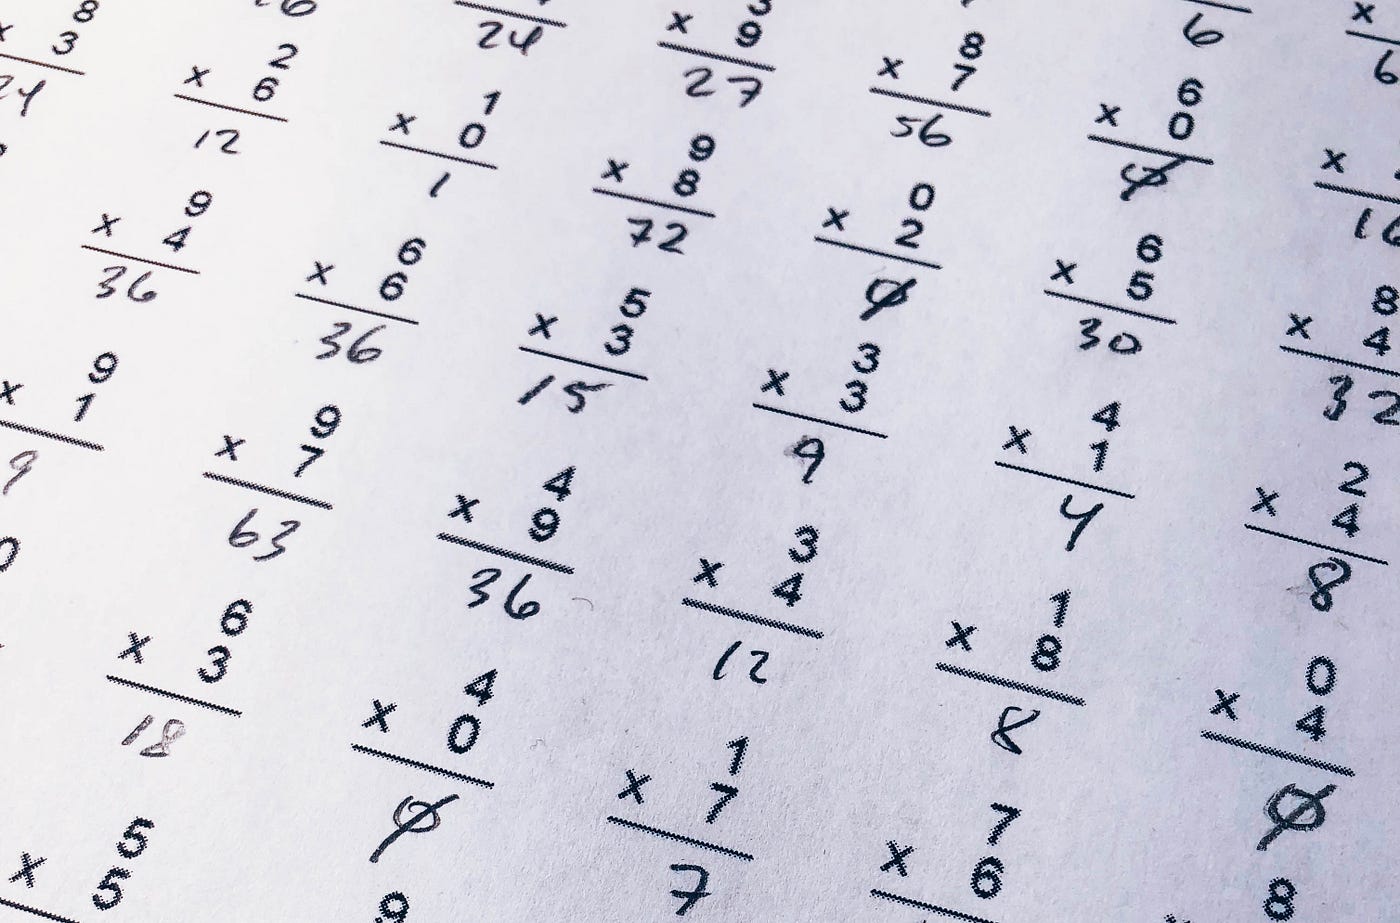 8
x 3
24
2
x 6
12
24
1
x 0
1
x 9
27
8
x 7
56
6
6
x 0
0
x
6
9
x 4
36
6
x 6
36
9
x 8
72
0
x 2
0
6
x 5
30
x
16
9
x 1
9
9
x 7
63
5
x 3
15
3
x 3
9
4
x 1
4
8
x 4
32
6
x 3
18
4
x 9
36
3
x 4
12
1
x 8
8
2
x 4
8
5
x 5
4
x 0
0
9
1
x 7
7
7
x 6
0
x 4
0
8